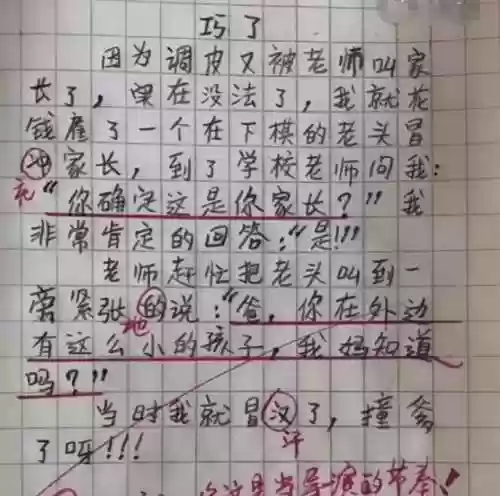 巧了
因为调皮又被老师叫家
长了，实在没法了，我就花
钱雇了一个在下棋的老头冒
冲家长，到了学校老师问我：
充
“你确定这是你家长？”我
非常肯定的回答：“是!!!
老师赶忙把老头叫到一
旁紧张的说：“爸，你在外边
地
有这么小的孩子，我妈知道
吗？”
当时我就冒汉了，撞爹
汗
了呀!!!
这是当导演的节奏！